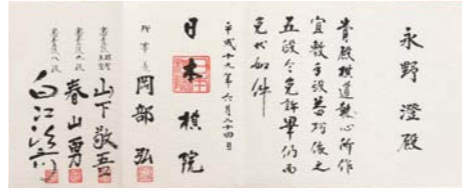 永野澄殿
貴殿棋道執心所作
宜敷手段漸巧依之
五段令免許畢仍而
免状如件
平成十九年六月二十四日
日本棋院
理事長 岡部弘
山下敬吾
春山勇
白江治彦